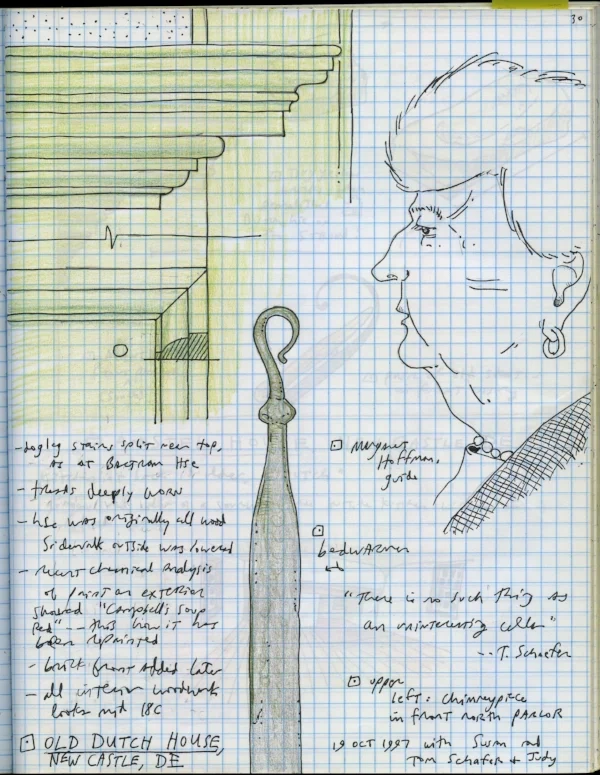 30
- dogleg stairs split near top,
as at Bartram Hse
- treads deeply worn
- hse was originally all wood
Sidewalk outside was lowered
- recent chemical analysis
of paint on exterior
showed "Campbell's Soup
Red" -- thus how it has
been repainted
- brick front added later
- all interior woodwork
looks mid 18C
OLD DUTCH HOUSE,
NEW CASTLE, DE
Margaret
Hoffman,
guide
bedwarmer
"There is no such thing as
an uninteresting cellar"
-- T. Schaefer
upper
left: chimneypiece
in front north PARLOR
19 OCT 1997 with Susan and
Tom Schafer + Judy